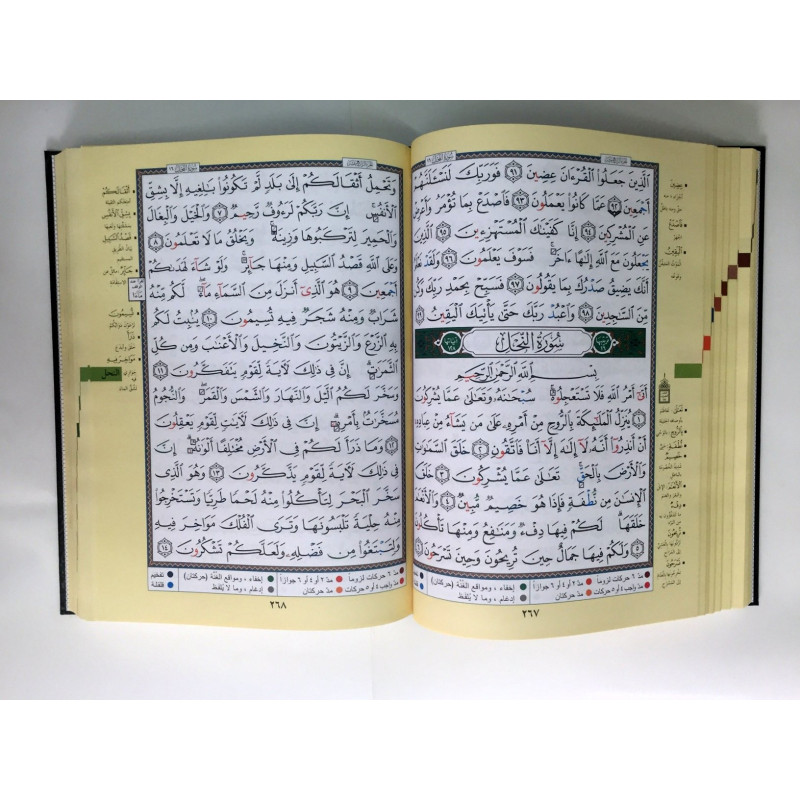 ٱلَّذِينَ جَعَلُوا۟ ٱلْقُرْءَانَ عِضِينَ ٩١ فَوَرَبِّكَ لَنَسْـَٔلَنَّهُمْ
أَجْمَعِينَ ٩٢ عَمَّا كَانُوا۟ يَعْمَلُونَ ٩٣ فَٱصْدَعْ بِمَا تُؤْمَرُ وَأَعْرِضْ
عَنِ ٱلْمُشْرِكِينَ ٩٤ إِنَّا كَفَيْنَـٰكَ ٱلْمُسْتَهْزِءِينَ ٩٥ ٱلَّذِينَ
يَجْعَلُونَ مَعَ ٱللَّهِ إِلَـٰهًا ءَاخَرَ ۚ فَسَوْفَ يَعْلَمُونَ ٩٦ وَلَقَدْ نَعْلَمُ
أَنَّكَ يَضِيقُ صَدْرُكَ بِمَا يَقُولُونَ ٩٧ فَسَبِّحْ بِحَمْدِ رَبِّكَ وَكُن
مِّنَ ٱلسَّـٰجِدِينَ ٩٨ وَٱعْبُدْ رَبَّكَ حَتَّىٰ يَأْتِيَكَ ٱلْيَقِينُ ٩٩
سُورَةُ ٱلنَّحْلِ
بِسْمِ ٱللَّهِ ٱلرَّحْمَـٰنِ ٱلرَّحِيمِ
أَتَىٰٓ أَمْرُ ٱللَّهِ فَلَا تَسْتَعْجِلُوهُ ۚ سُبْحَـٰنَهُۥ وَتَعَـٰلَىٰ عَمَّا يُشْرِكُونَ
١ يُنَزِّلُ ٱلْمَلَـٰٓئِكَةَ بِٱلرُّوحِ مِنْ أَمْرِهِۦ عَلَىٰ مَن يَشَآءُ مِنْ عِبَادِهِۦٓ
أَنْ أَنذِرُوٓا۟ أَنَّهُۥ لَآ إِلَـٰهَ إِلَّآ أَنَا۠ فَٱتَّقُونِ ٢ خَلَقَ ٱلسَّمَـٰوَٰتِ
وَٱلْأَرْضَ بِٱلْحَقِّ ۚ تَعَـٰلَىٰ عَمَّا يُشْرِكُونَ ٣ خَلَقَ
ٱلْإِنسَـٰنَ مِن نُّطْفَةٍ فَإِذَا هُوَ خَصِيمٌ مُّبِينٌ ٤ وَٱلْأَنْعَـٰمَ
خَلَقَهَا ۗ لَكُمْ فِيهَا دِفْءٌ وَمَنَـٰفِعُ وَمِنْهَا تَأْكُلُونَ
٥ وَلَكُمْ فِيهَا جَمَالٌ حِينَ تُرِيحُونَ وَحِينَ تَسْرَحُونَ ٦
مدّ ٦ حركات لزوماً مدّ ٢ أو ٤ أو ٦ جوازاً إخفاء ، ومواقع الغنّة (حركتان)
مدّ واجب ٤ أو ٥ حركات مدّ حركتان إدغام ، وما لا يُلفظ
٢٦٧
وَتَحْمِلُ أَثْقَالَكُمْ إِلَىٰ بَلَدٍ لَّمْ تَكُونُوا۟ بَـٰلِغِيهِ إِلَّا بِشِقِّ
ٱلْأَنفُسِ ۚ إِنَّ رَبَّكُمْ لَرَءُوفٌ رَّحِيمٌ ٧ وَٱلْخَيْلَ وَٱلْبِغَالَ
وَٱلْحَمِيرَ لِتَرْكَبُوهَا وَزِينَةً ۚ وَيَخْلُقُ مَا لَا تَعْلَمُونَ ٨
وَعَلَى ٱللَّهِ قَصْدُ ٱلسَّبِيلِ وَمِنْهَا جَآئِرٌ ۚ وَلَوْ شَآءَ لَهَدَىٰكُمْ
أَجْمَعِينَ ٩ هُوَ ٱلَّذِىٓ أَنزَلَ مِنَ ٱلسَّمَآءِ مَآءً ۖ لَّكُم مِّنْهُ
شَرَابٌ وَمِنْهُ شَجَرٌ فِيهِ تُسِيمُونَ ١٠ يُنۢبِتُ لَكُم
بِهِ ٱلزَّرْعَ وَٱلزَّيْتُونَ وَٱلنَّخِيلَ وَٱلْأَعْنَـٰبَ وَمِن كُلِّ
ٱلثَّمَرَٰتِ ۗ إِنَّ فِى ذَٰلِكَ لَـَٔايَةً لِّقَوْمٍ يَتَفَكَّرُونَ ١١
وَسَخَّرَ لَكُمُ ٱلَّيْلَ وَٱلنَّهَارَ وَٱلشَّمْسَ وَٱلْقَمَرَ ۖ وَٱلنُّجُومُ
مُسَخَّرَٰتٌۢ بِأَمْرِهِۦٓ ۗ إِنَّ فِى ذَٰلِكَ لَـَٔايَـٰتٍ لِّقَوْمٍ يَعْقِلُونَ
١٢ وَمَا ذَرَأَ لَكُمْ فِى ٱلْأَرْضِ مُخْتَلِفًا أَلْوَٰنُهُۥٓ ۗ إِنَّ
فِى ذَٰلِكَ لَـَٔايَةً لِّقَوْمٍ يَذَّكَّرُونَ ١٣ وَهُوَ ٱلَّذِى
سَخَّرَ ٱلْبَحْرَ لِتَأْكُلُوا۟ مِنْهُ لَحْمًا طَرِيًّا وَتَسْتَخْرِجُوا۟
مِنْهُ حِلْيَةً تَلْبَسُونَهَا وَتَرَى ٱلْفُلْكَ مَوَاخِرَ فِيهِ
وَلِتَبْتَغُوا۟ مِن فَضْلِهِۦ وَلَعَلَّكُمْ تَشْكُرُونَ ١٤
مدّ ٦ حركات لزوماً مدّ ٢ أو ٤ أو ٦ جوازاً إخفاء ، ومواقع الغنّة (حركتان) تفخيم
مدّ واجب ٤ أو ٥ حركات مدّ حركتان إدغام ، وما لا يُلفظ قلقلة
٢٦٨
عِضِينَ
فَٱصْدَعْ
ٱلْيَقِينُ
أَثْقَالَكُمْ
بِشِقِّ ٱلْأَنفُسِ
قَصْدُ ٱلسَّبِيلِ
جَآئِرٌ
تُسِيمُونَ
ذَرَأَ
مَوَاخِرَ فِيهِ
النحل